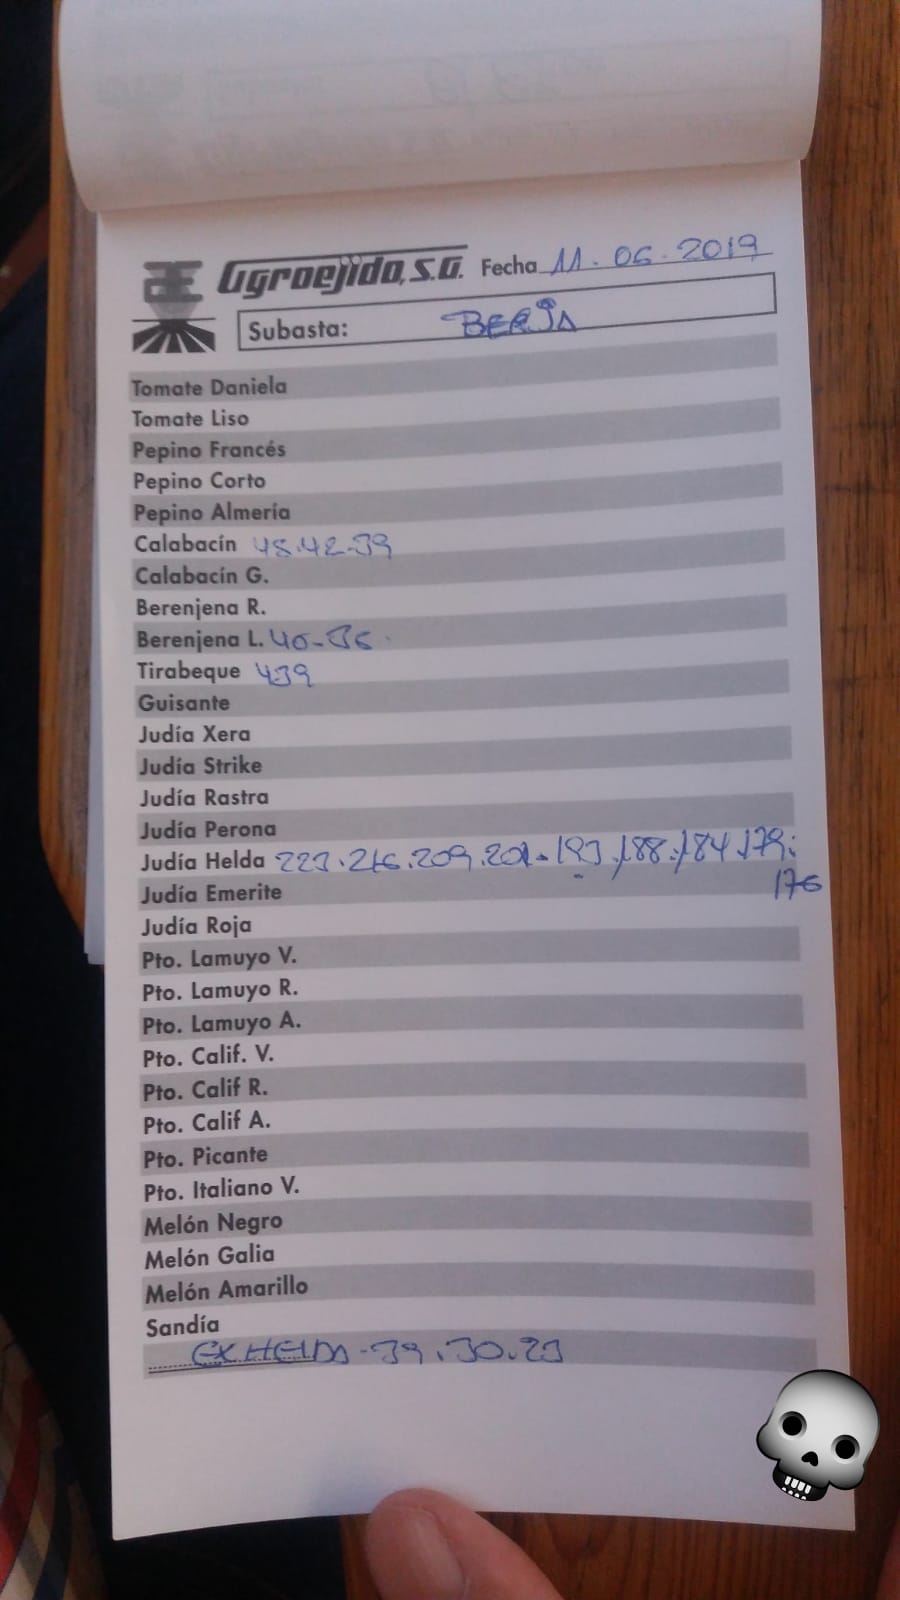 Agroejido, S.A. Fecha 11.06.2019
Subasta: BERJA
Tomate Daniela
Tomate Liso
Pepino Francés
Pepino Corto
Pepino Almería
Calabacín 48.42-39
Calabacín G.
Berenjena R.
Berenjena L. 40-36
Tirabeque 439
Guisante
Judía Xera
Judía Strike
Judía Rastra
Judía Perona
Judía Helda 223.216.209.201.193.188.184.179.
176
Judía Emerite
Judía Roja
Pto. Lamuyo V.
Pto. Lamuyo R.
Pto. Lamuyo A.
Pto. Calif. V.
Pto. Calif R.
Pto. Calif A.
Pto. Picante
Pto. Italiano V.
Melón Negro
Melón Galia
Melón Amarillo
Sandía
EX.HELDA-39.30.23